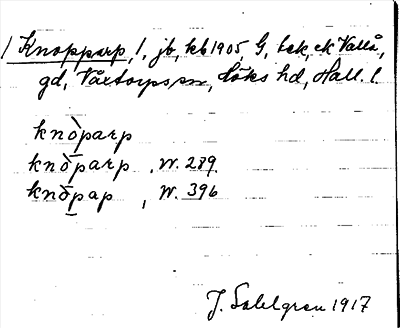 / Knopparp, l., jb, kb 1905, G, bek, ek Vallå,
gd, Våxtorps sn, Höks hd, Hall. l.
knòparp
knò̱parp, W. 289.
knò̱pap, W. 396
J. Sahlgren 1917